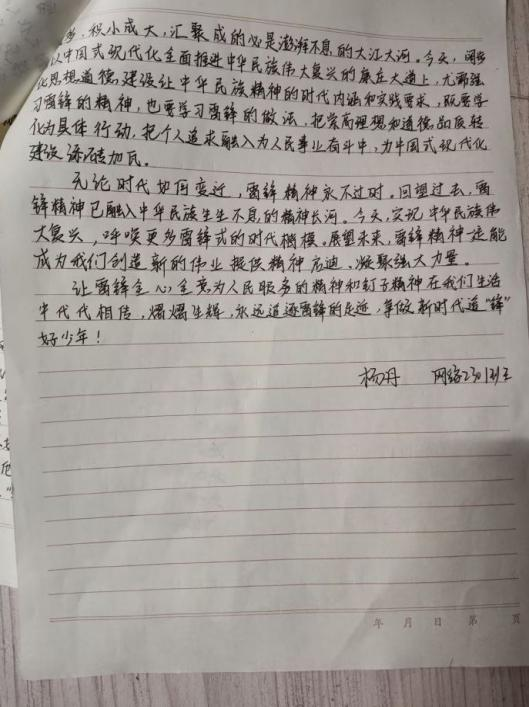 多，积小成大，汇聚成的必是澎湃不息的大江大河。今天，阔步
以中国式现代化全面推进中华民族伟大复兴的康庄大道上，尤需强
化思想道德建设让中华民族精神的时代内涵和实践要求，既要学
习雷锋的精神，也要学习雷锋的做法，把崇高理想和道德品质转
化为具体行动，把个人追求融入为人民事业奋斗中，为中国式现代化
建设添砖加瓦。
无论时代如何变迁，雷锋精神永不过时。回望过去，雷
锋精神已融入中华民族生生不息的精神长河。今天，实现中华民族伟
大复兴，呼唤更多雷锋式的时代楷模。展望未来，雷锋精神一定能
成为我们创造新的伟业提供精神启迪、凝聚强大力量。
让雷锋全心全意为人民服务的精神和钉子精神在我们生活
中代代相传，熠熠生辉，永远追逐雷锋的足迹，争做新时代追“锋”
好少年！
杨丹 网络2301班
年 月 日 第 页